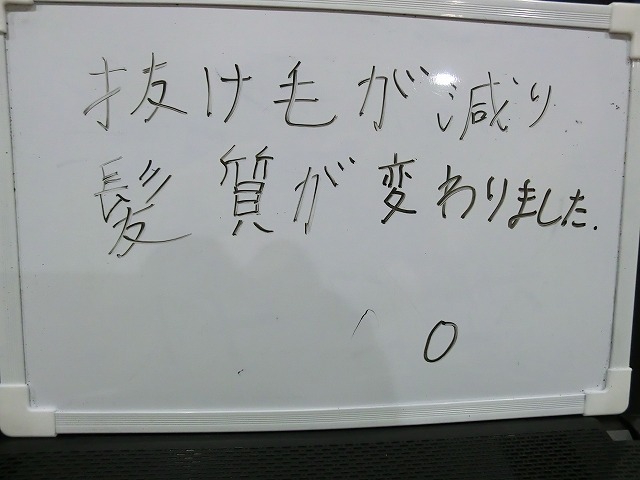 抜け毛が減り
髪質が変わりました.
O